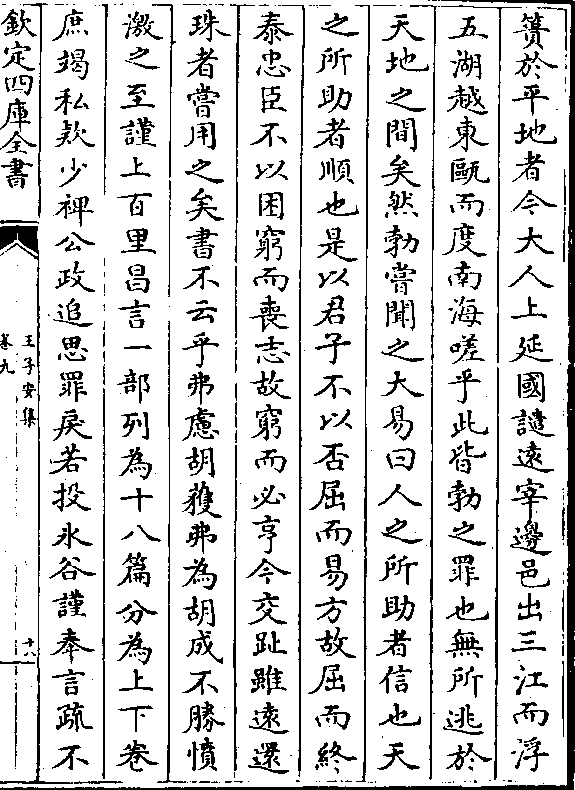 簣於平地者今大人上延國譴遠宰邊邑出三江而浮
五湖越東甌而度南海嗟乎此皆勃之罪也無所逃於
天地之間矣然勃嘗聞之大易曰人之所助者信也天
之所助者順也是以君子不以否屈而易方故屈而終
泰忠臣不以困窮而喪志故窮而必亨今交趾雖遠還
珠者嘗用之矣書不云乎弗慮胡獲弗為胡成不勝憤
激之至謹上百里昌言一部列為十八篇分為上下卷
庶竭私款少裨公政追思罪戾若投氷谷謹奉言疏不
欽定四庫全書
王子安集
卷九
十八